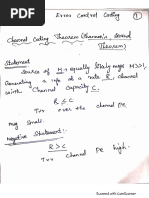 Error Control Coding 1
Channel Coding Theorem (Shannon's second
Theorem)
Statement
Source of M equally likely msgs M>>1,
generating a info at a rate R, channel
with Channel Capacity C.
R ≤ C
Txr channel
Txn
Negative Statement:
R > C
Txr channel Pe high.
msg
Scanned with CamScanner